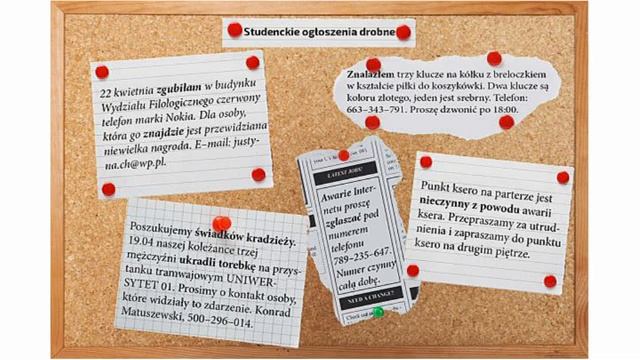 Studenckie ogłoszenia drobne
22 kwietnia zgubiłam w budynku
Wydziału Filologicznego czerwony
telefon marki Nokia. Dla osoby,
która go znajdzie jest przewidziana
niewielka nagroda. E-mail: justy-
na.ch@wp.pl.
Znalazłem trzy klucze na kółku z breloczkiem
w kształcie piłki do koszykówki. Dwa klucze są
koloru złotego, jeden jest srebrny. Telefon:
663–343–791. Proszę dzwonić po 18:00.
LATEST JOBS!
Awarie Inter-
netu proszę
zgłaszać pod
numerem
telefonu
789–235–647.
Numer czynny
całą dobę.
NEED A CHANGE?
Punkt ksero na parterze jest
nieczynny z powodu awarii
ksera. Przepraszamy za utrud-
nienia i zapraszamy do punktu
ksero na drugim piętrze.
Poszukujemy świadków kradzieży.
19.04 naszej koleżance trzej
mężczyźni ukradli torebkę na przys-
tanku tramwajowym UNIWER-
SYTET 01. Prosimy o kontakt osoby,
które widziały to zdarzenie. Konrad
Matuszewski, 500–296–014.